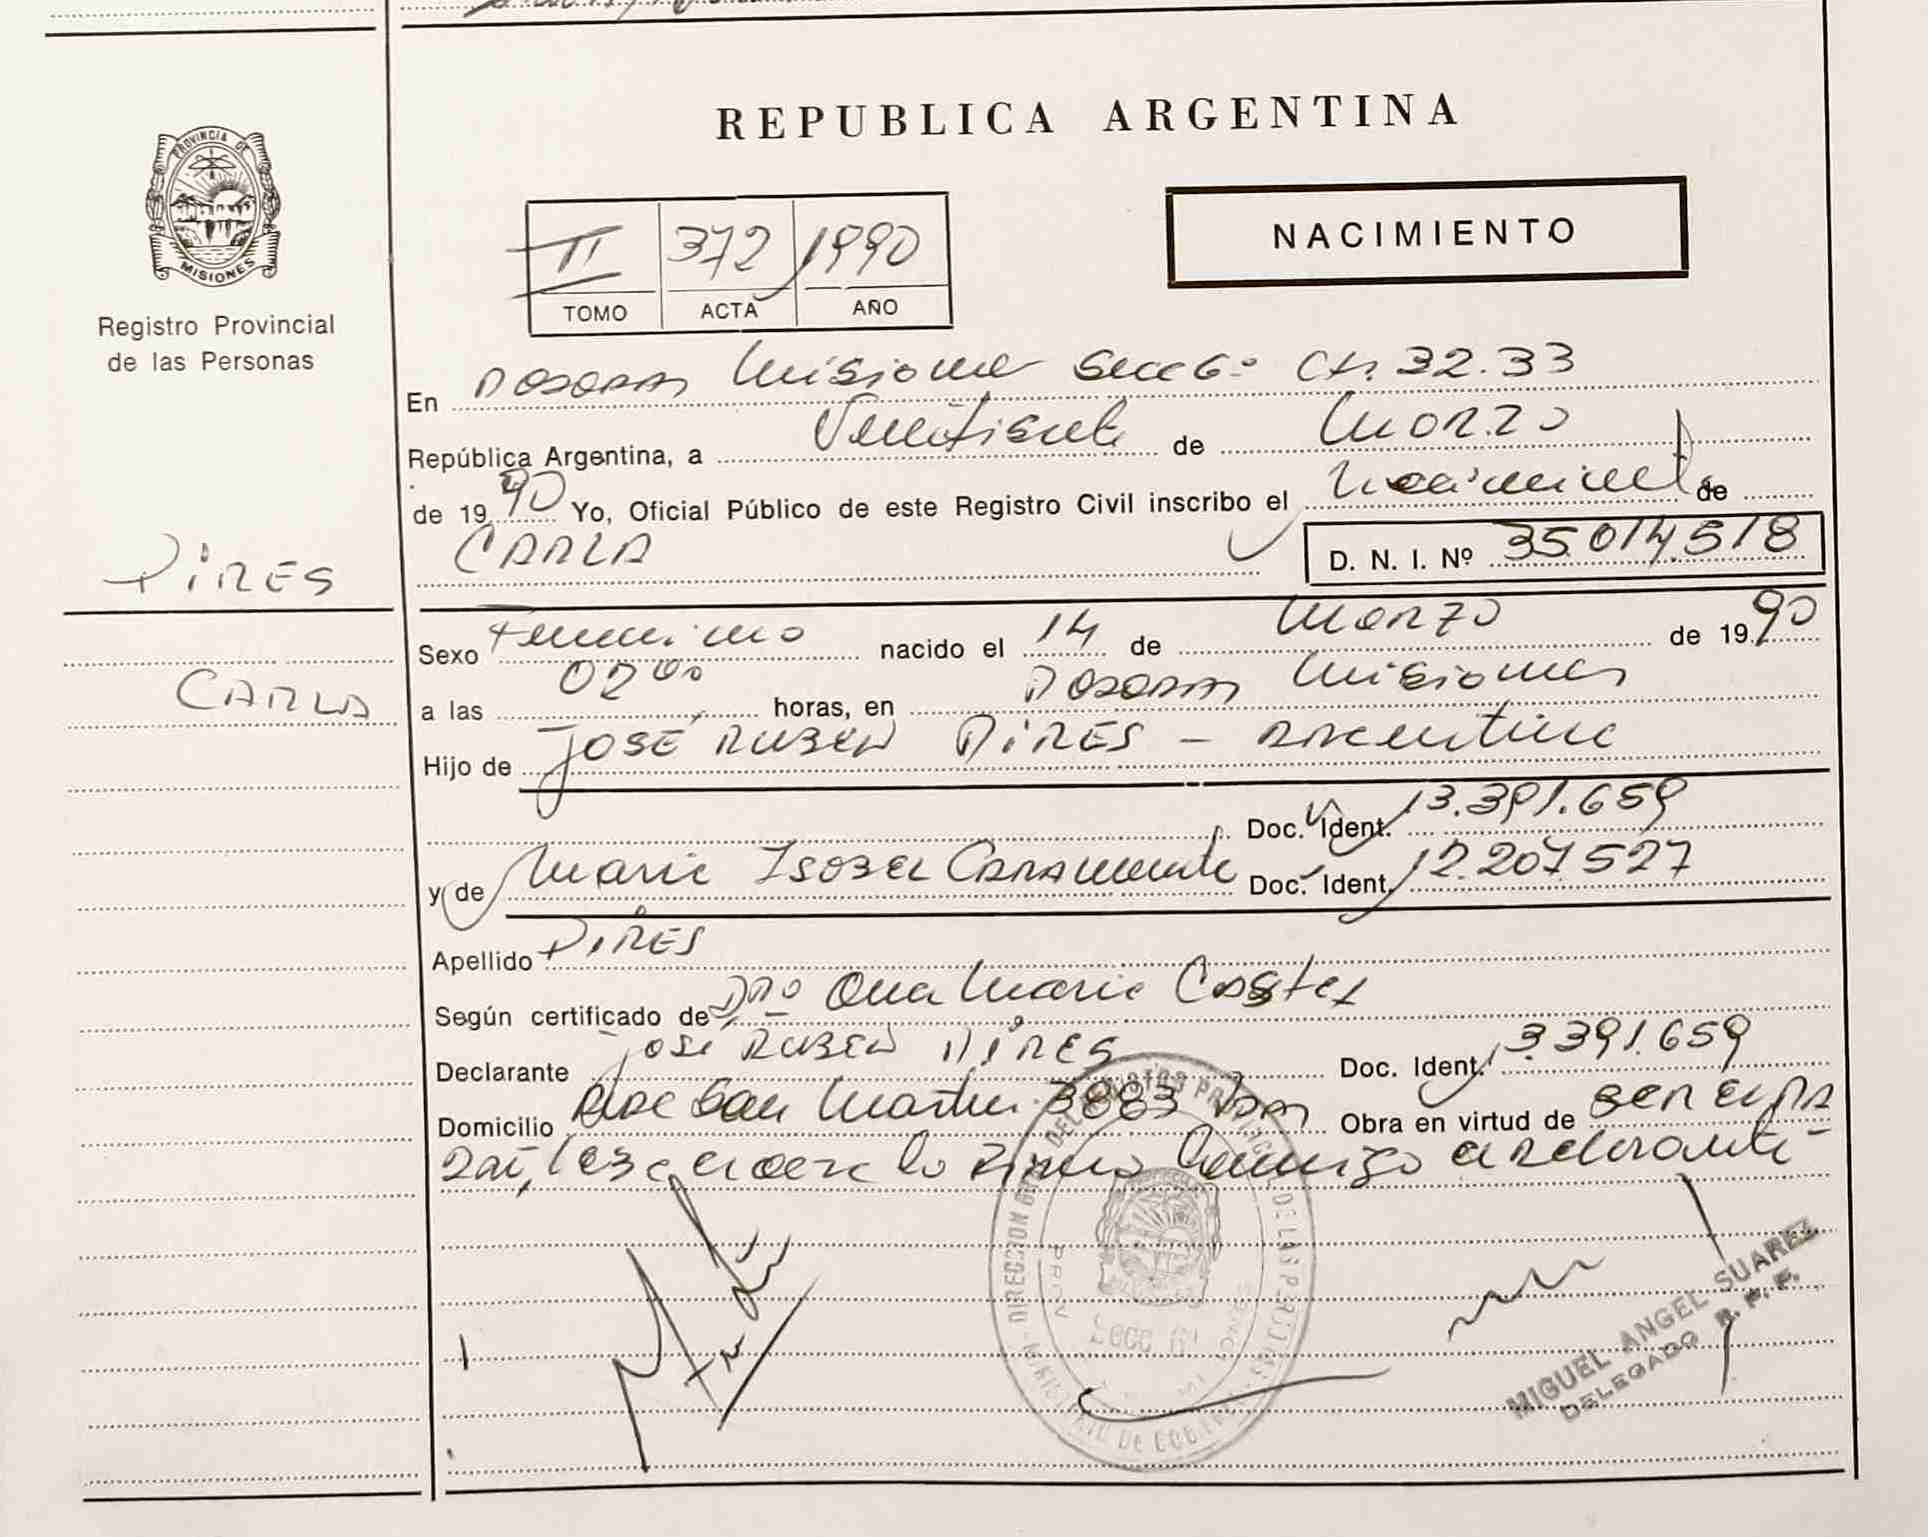 PROVINCIA DE
MISIONES
Registro Provincial
de las Personas
PIRES
CARLA
REPUBLICA ARGENTINA
II 372 1990
TOMO ACTA AÑO
NACIMIENTO
En Posadas Misiones Secc 6º Ch. 32.33
República Argentina, a Veintisiete de Marzo
de 1990 Yo, Oficial Público de este Registro Civil inscribo el nacimiento de
CARLA D. N. I. Nº 35.014.518
Sexo Femenino nacido el 14 de Marzo de 1990
a las horas, en Posadas Misiones
Hijo de JOSÉ RUBEN PIRES - Argentino
Doc. Ident. 13.391.659
y de Maria Isabel Doc. Ident. 12.207.527
Apellido PIRES
Según certificado de Dra Ana Maria
Declarante José RUBEN PIRES Doc. Ident. 13.391.659
Domicilio San Martin 3883 Obra en virtud de
lo firma conmigo el declarante-
DIRECCION DE LAS PERSONAS
MIGUEL ANGEL SUAREZ
DELEGADO R. P. P.